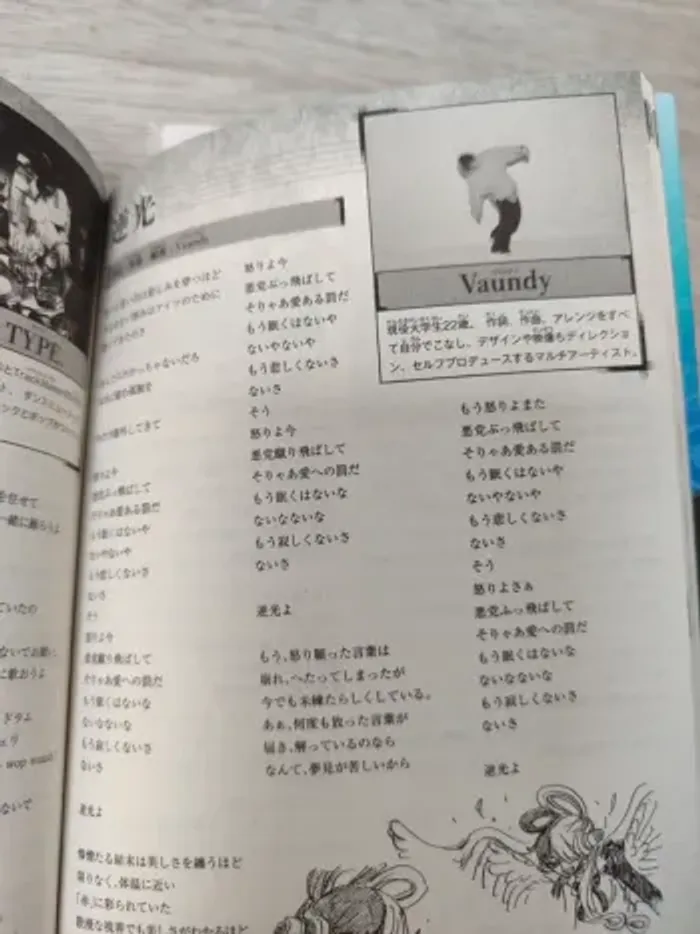 TYPE
一緒に踊ろうよ
ていたの
に歌おうよ
ドラム
wop
ないで
逆光
Vaundy
怒りよ今
悪党ぶっ飛ばして
そりゃあ愛ある罰だ
もう眠くはないや
ないやないや
もう悲しくないさ
ないさ
そう
怒りよ今
悪党蹴り飛ばして
そりゃあ愛への罰だ
もう眠くはないな
ないなないな
もう寂しくないさ
ないさ
逆光よ
惨憺たる結末は美しさを纏うほど
限りなく、体温に近い
「赤」に彩られていた
散漫な視界でも美しさがわかるほど
怒りよ今
悪党ぶっ飛ばして
そりゃあ愛ある罰だ
もう眠くはないや
ないやないや
もう悲しくないさ
ないさ
そう
怒りよ今
悪党蹴り飛ばして
そりゃあ愛への罰だ
もう眠くはないな
ないなないな
もう寂しくないさ
ないさ
逆光よ
もう、怒り願った言葉は
崩れ、へたってしまったが
今でも未練たらしくしている。
あぁ、何度も放った言葉が
届き、解っているのなら
なんて、夢見が苦しいから
Vaundy
現役大学生22歳。作詞、作曲、アレンジをすべ
て自分でこなし、デザインや映像もディレクショ
ン、セルフプロデュースするマルチアーティスト。
もう怒りよまた
悪党ぶっ飛ばして
そりゃあ愛ある罰だ
もう眠くはないや
ないやないや
もう悲しくないさ
ないさ
そう
怒りよさぁ
悪党ぶっ飛ばして
そりゃあ愛への罰だ
もう眠くはないな
ないなないな
もう寂しくないさ
ないさ
逆光よ